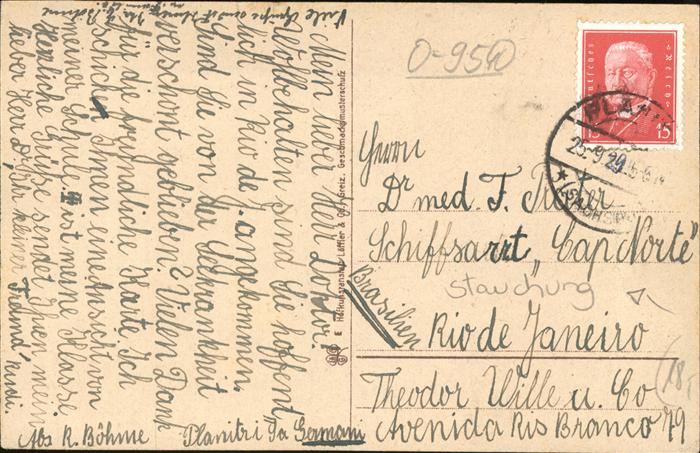 Mein lieber Herr Doktor.
Wollbehalten sind Sie hoffent,
lich in Rio de J. angekommen.
Sind Sie von der Seekrankheit
verschont geblieben? Vielen Dank
für die freundliche Karte. Ich
schicke Ihnen eine Ansicht von
meiner Schule. ist meine Klasse.
Herzliche Grüße sendet Ihnen mein
lieber Herr Dr. Ihr kleiner Freund Rudi.
Viele Grüße
Abs R. Böhme Planitz i Sa Germani
E Heftkunstanstalt Löffler & Co., Greiz. Geschmacksmusterschutz
0-950
Deutsches Reich
15 15
PLANITZ
25.9.29.
(SACHSEN)
Herrn
Dr med. F.
Schiffsarzt „Cap Norte"
Stauchung
Brasilien
Rio de Janeiro
Theodor Wille u. Co
Avenida Ris Branco 79
(18.-